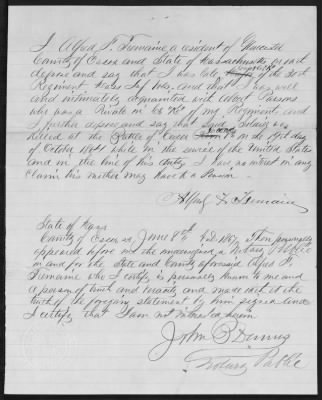 I Alfred F. Tremaine a resident of Gloucester
County of Essex and State of Massachusetts on oath
depose and say that I was late of the 30th
Regiment Mass Inf Vols, and that I was well
and intimately acquainted with Albert Parsons
who was a Private in Co "K" of my Regiment and
I further depose and say that said Parsons was
killed at the Battle of Cedar Creek on the 19th day
of October 1864 while in the service of the United States
and in the line of his duty. I have no interest in any
claim his mother may have to a Pension
Alfred F. Tremaine
State of Mass
County of Essex ss, June 8th A.D. 1867, Then personally
appeared before me the undersigned a Notary Public
in and for the State and County aforesaid Alfred F.
Tremaine who I certify is personally known to me and
a person of truth and veracity, and made oath to the
truth of the foregoing statement by him signed and
I certify that I am not interested herein
John
Notary Public